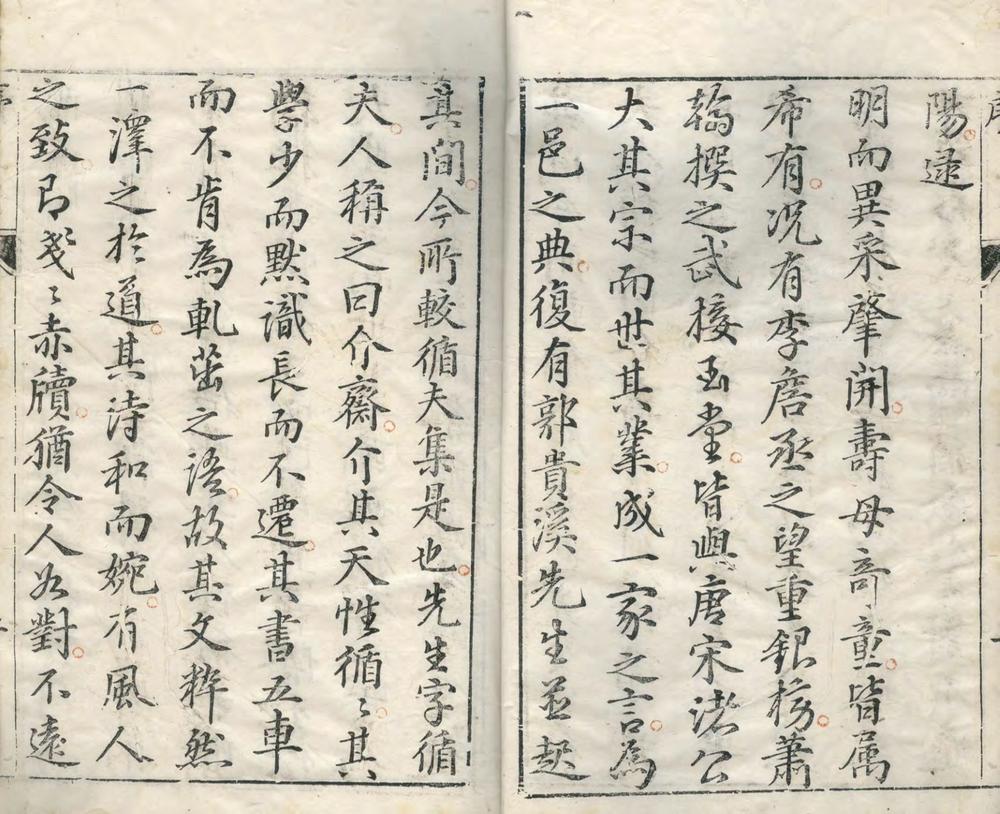 陽逯
明而異采肇開壽母奇童皆属
希有况有李詹丞之望重銀榜蕭
翰撰之武接玉堂皆與唐宋諸公
大其宗而世其業成一家之言為
一邑之典復有郭貴溪先生並起
其間今所較循夫集是也先生字循
夫人稱之曰介齋介其天性循〻其
學少而默識長而不遷其書五車
而不肯為軋茁之語故其文粹然
一澤之於道其诗和而婉有風人
之致即戔〻赤牘猶令人如對不遠